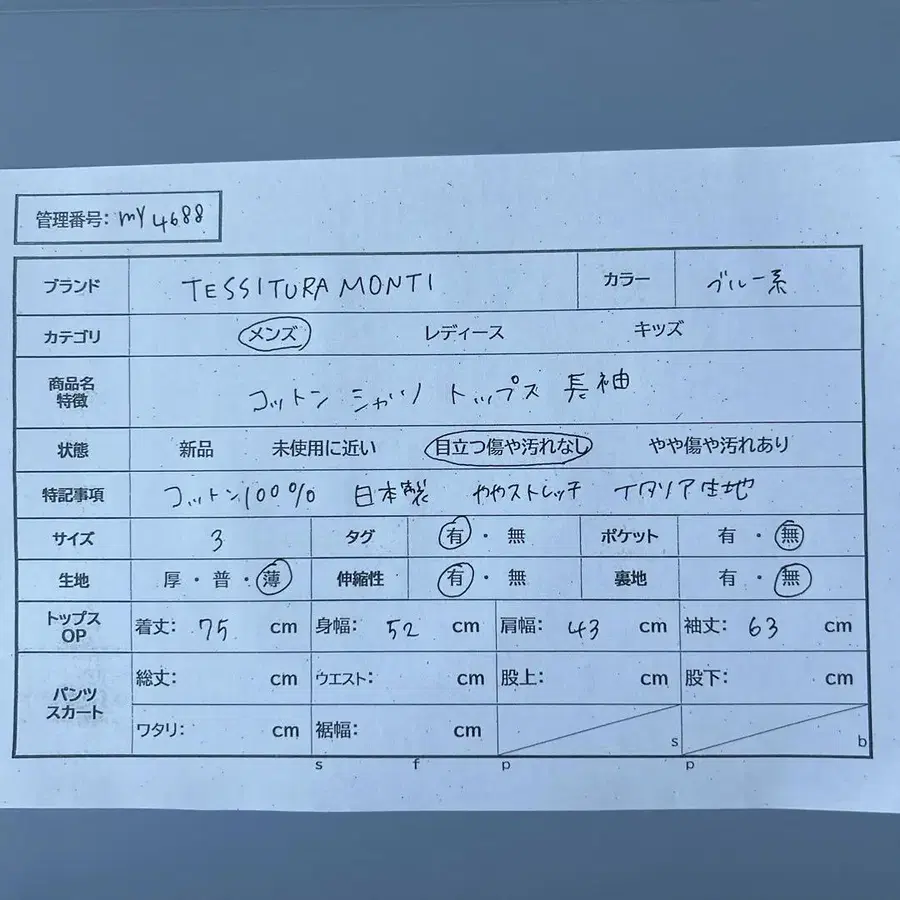 管理番号: my 4688
ブランド TESSITURA MONTI カラー ブルー系
カテゴリ メンズ レディース キッズ
商品名 特徴 コットン シャツ トップス 長袖
状態 新品 未使用に近い 目立つ傷や汚れなし やや傷や汚れあり
特記事項 コットン100% 日本製 ややストレッチ イタリア生地
サイズ 3 タグ 有・無 ポケット 有・無
生地 厚・普・薄 伸縮性 有・無 裏地 有・無
トップス OP 着丈: 75 cm 身幅: 52 cm 肩幅: 43 cm 袖丈: 63 cm
パンツ スカート 総丈: cm ウエスト: cm 股上: cm 股下: cm
ワタリ: cm 裾幅: cm s b
s f p p